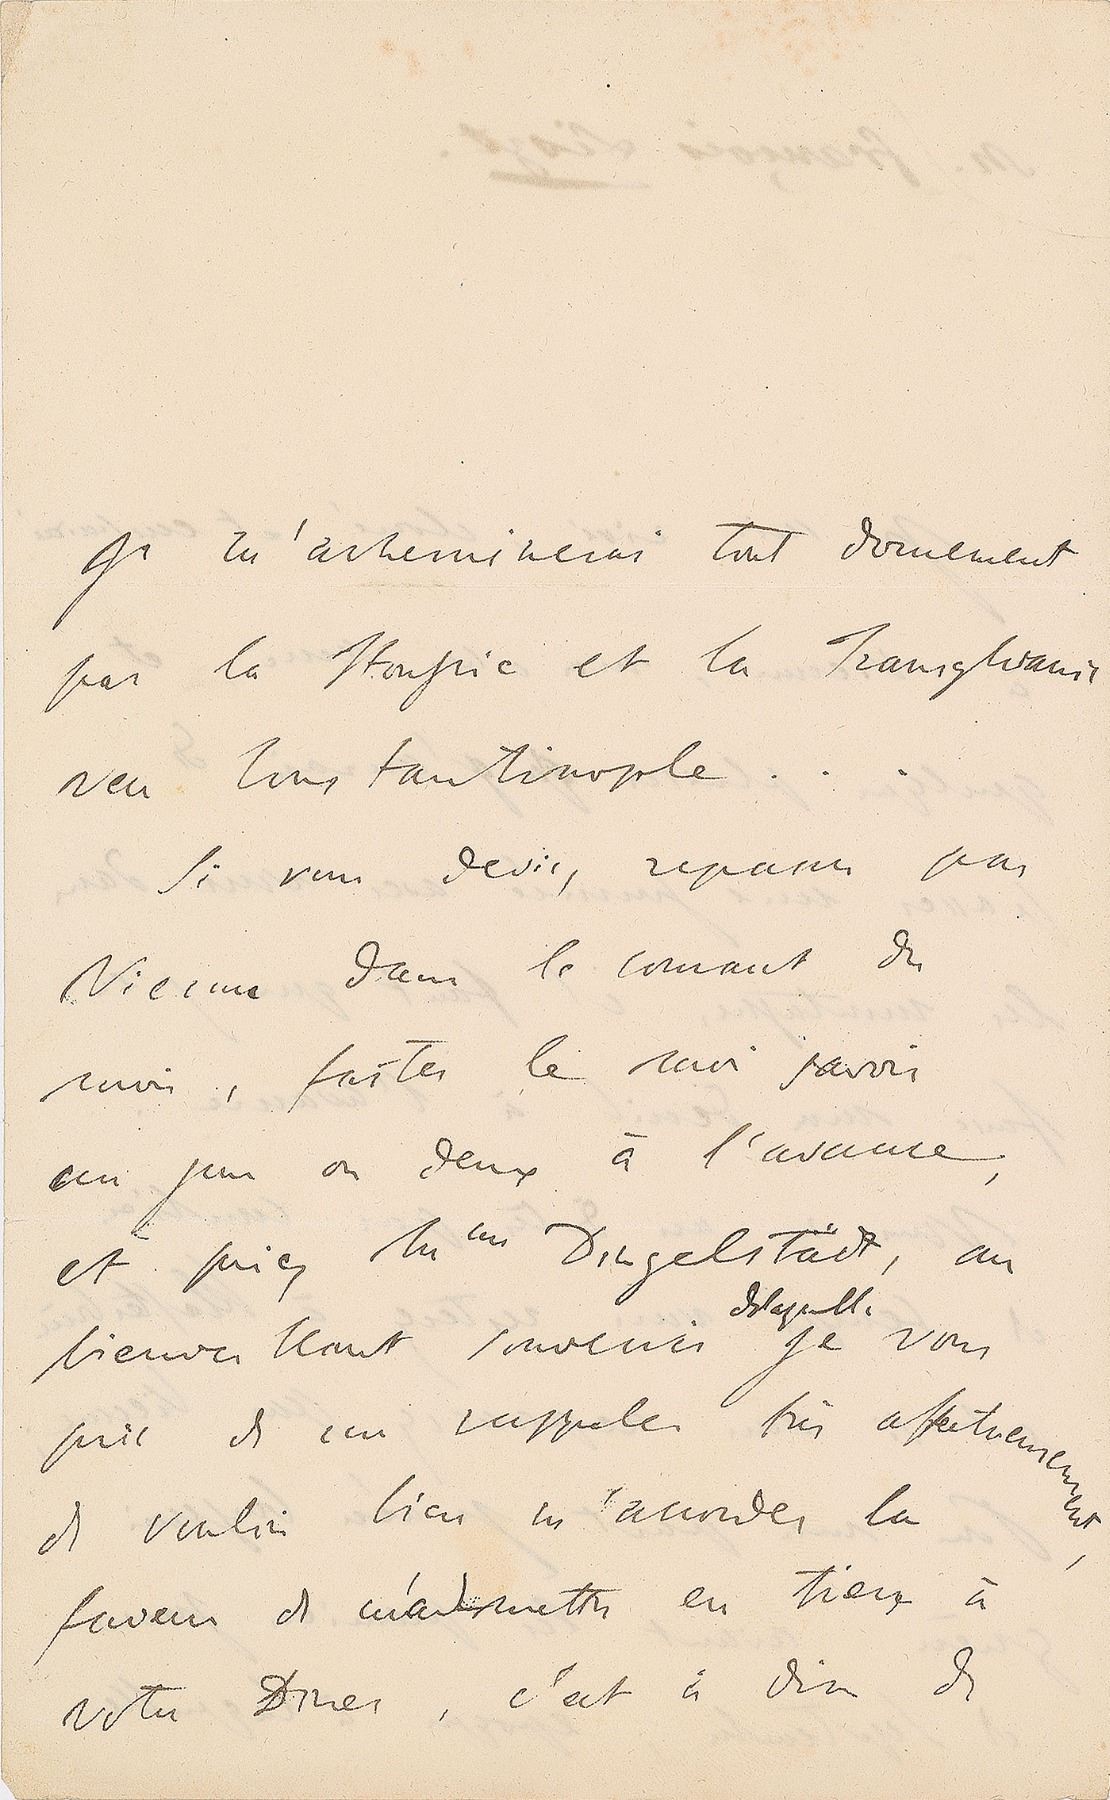 Je m'acheminerai tout doucement
par la Hongrie et la Transylvanie
vers Constantinople . . .
Si vous deviez repasser par
Vienne dans le courant du
mois, faites le moi savoir
un jour ou deux à l'avance,
et priez Mme Dingelstädt, au
bienveillant souvenir de laquelle je vous
prie de me rappeler très affectueusement,
de vouloir bien m'accorder la
faveur de m'admettre en tiers à
votre Diner, c'est à dire de